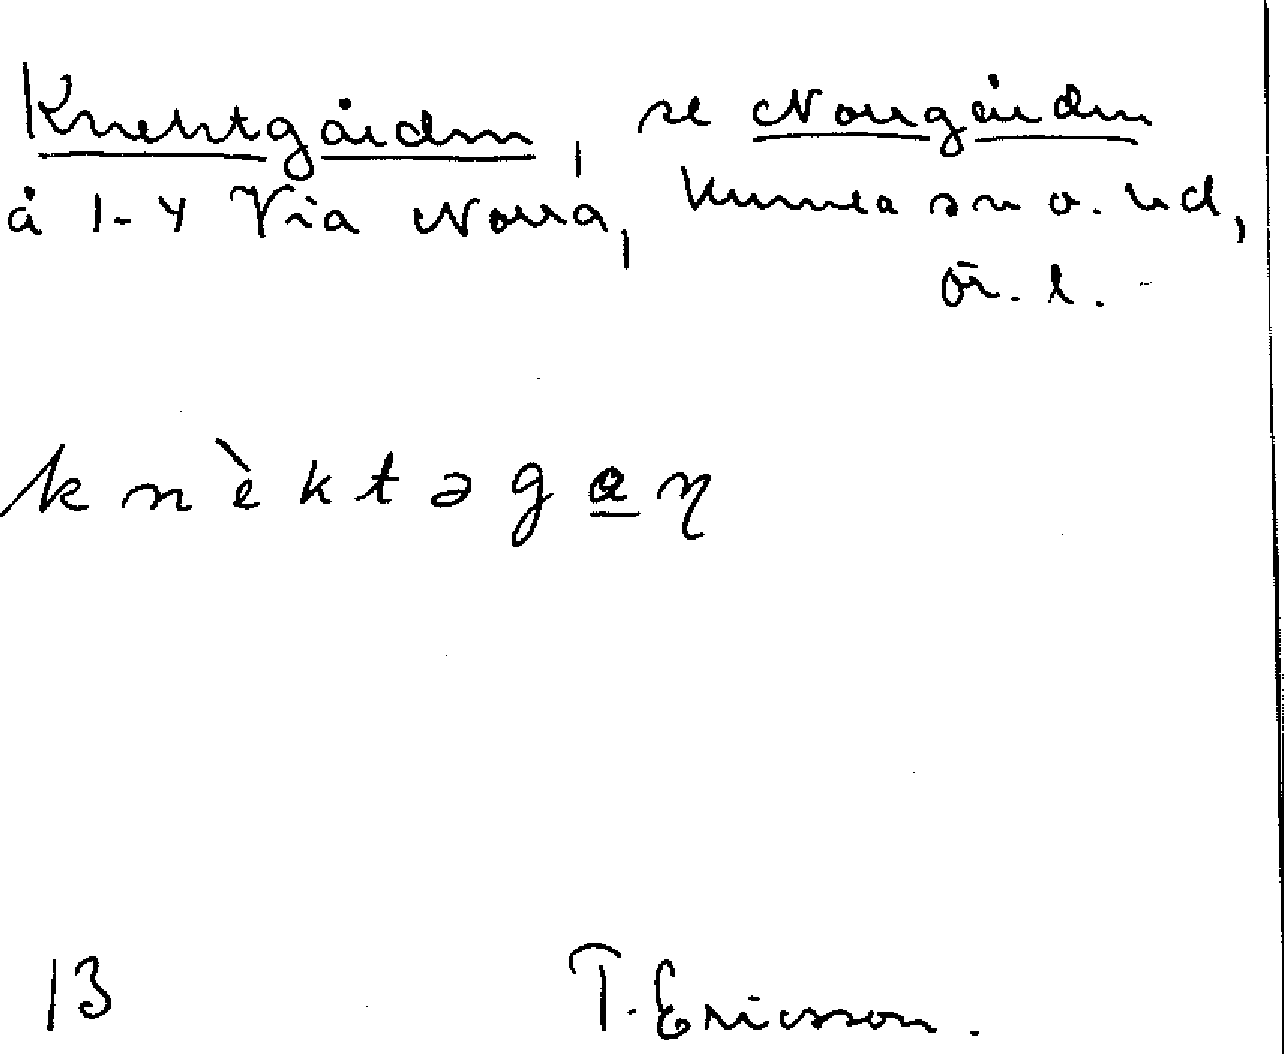 Knektgården, se Norrgården
å 1-4 Via Norra, Kumla sn o. hd,
Ör. l.
knèktəgaɳ
13 T. Ericsson.